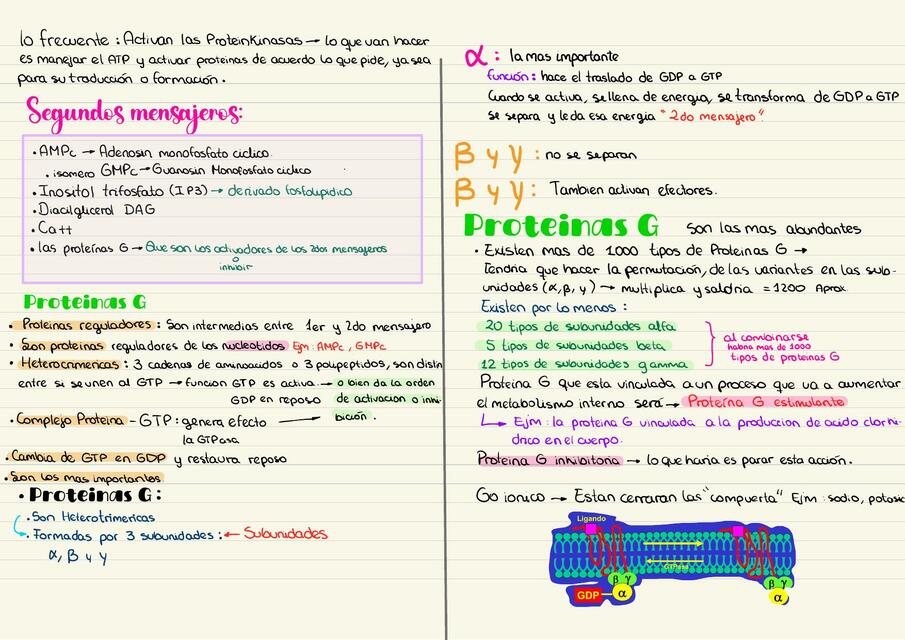 lo frecuente : Activan las Proteinkinasas → lo que van hacer
es manejar el ATP y activar proteinas de acuerdo lo que pide, ya sea
para su traducción o formación.
Segundos mensajeros:
• AMPc → Adenosin monofosfato ciclico.
• isomero GMPc → Guanosin Monofosfato ciclico
• Inositol trifosfato (IP3) → derivado fosfolipidico
• Diacilglicerol DAG
• Ca++
• las proteínas G → Que son los activadores de los 2dos mensajeros
o
inhibir
Proteinas G
• Proteinas reguladores : Son intermedias entre 1er y 2do mensajero
• Son proteinas reguladores de los nucleotidos Ejm : AMPc, GMPc
• Heterotrimericas : 3 cadenas de aminoacidos o 3 polipeptidos, son distin
entre si se unen al GTP → funcion GTP es activa. → o bien da la orden
GDP en reposo de activacion o inhi-
bición.
• Complejo Proteina - GTP : genera efecto →
la GTPasa
• Cambia de GTP en GDP y restaura reposo
• Son los mas importantes
• Proteinas G :
• Son Heterotrimericas
• Formadas por 3 subunidades : ← Subunidades
α, β y γ
α : la mas importante
función : hace el traslado de GDP a GTP
Cuando se activa, se llena de energia, se transforma de GDP a GTP
se separa y le da esa energia "2do mensajero".
β y γ : no se separan
β y γ : Tambien activan efectores.
Proteinas G Son las mas abundantes
• Existen mas de 1000 tipos de Proteinas G →
Tendria que hacer la permutación, de las variantes en las sub-
unidades (α, β, γ) → multiplica y saldria = 1200 Aprox.
Existen por lo menos :
20 tipos de subunidades alfa
5 tipos de subunidades beta
12 tipos de subunidades gamma
al combinarse
habria mas de 1000
tipos de proteinas G
Proteina G que esta vinculada a un proceso que va a aumentar
el metabolismo interno será → Proteína G estimulante
→ Ejm : la proteina G vinculada a la produccion de acido clorhi-
drico en el cuerpo.
Proteina G inhibitoria → lo que haria es parar esta acción.
Go ionico → Estan cerraran las "compuerta" Ejm : sodio, potasio
Ligando
GTPasa
β γ
GDP α
β γ
α